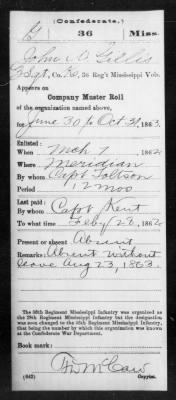 (Confederate.)
G 36 Miss.
John D Gillis
Sgt, Co. G, 36 Reg't Mississippi Vols.
Appears on
Company Muster Roll
of the organization named above,
for June 30 to Oct 31, 1863.
Enlisted:
When Mch 7, 1862
Where Meridian
By whom Capt
Period 12 mos
Last paid:
By whom Capt Kent
To what time Feby 28, 1863
Present or absent Absent
Remarks: Absent without
leave Aug 23, 1863.
The 36th Regiment Mississippi Infantry was organized as
the Regiment Mississippi Infantry but the designation
was soon changed to the 36th Regiment Mississippi Infantry,
that being the number by which this organization was known at
the Confederate War Department.
Book mark:
McCaw
(642) Copyist.